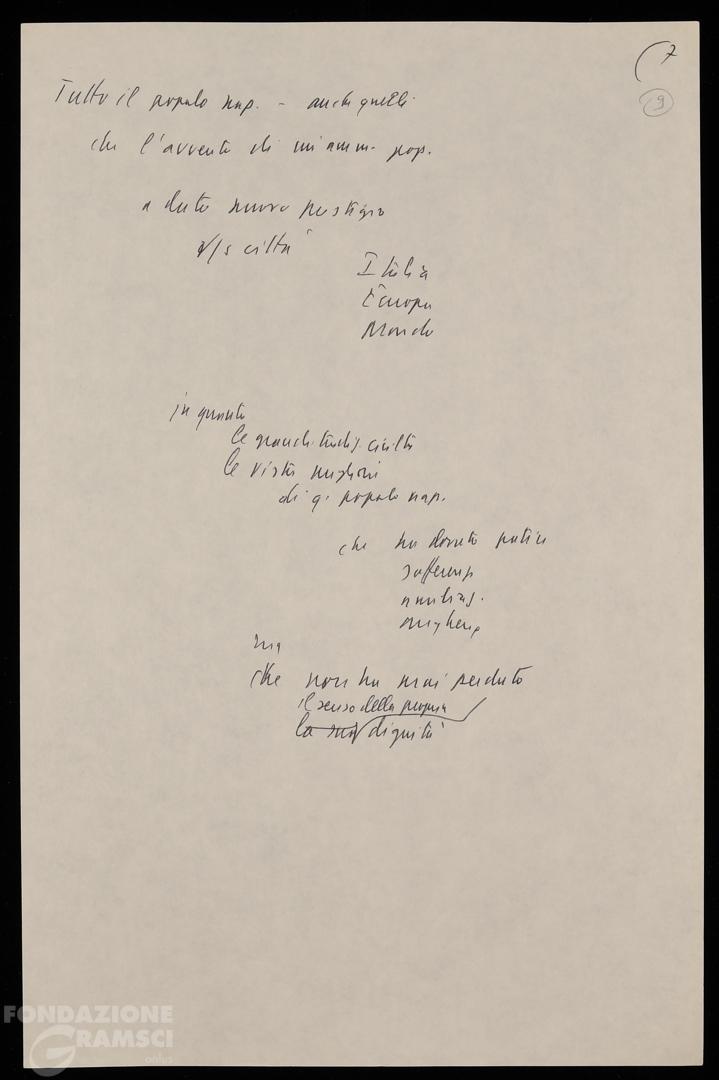 (7
9
Tutto il popolo nap. - anche quelli
che l'avvento di un'amm. pop.
a dato nuovo prestigio
a/s città
Italia
Europa
Mondo
in quanto
le grandi tradiz. civiltà
le virtù migliori
di q. popolo nap.
che ha dovuto patire
sofferenz
umiliaz.
ma
che non ha mai perduto
il senso della propria
la sua dignità
FONDAZIONE
GRAMSCI
onlus